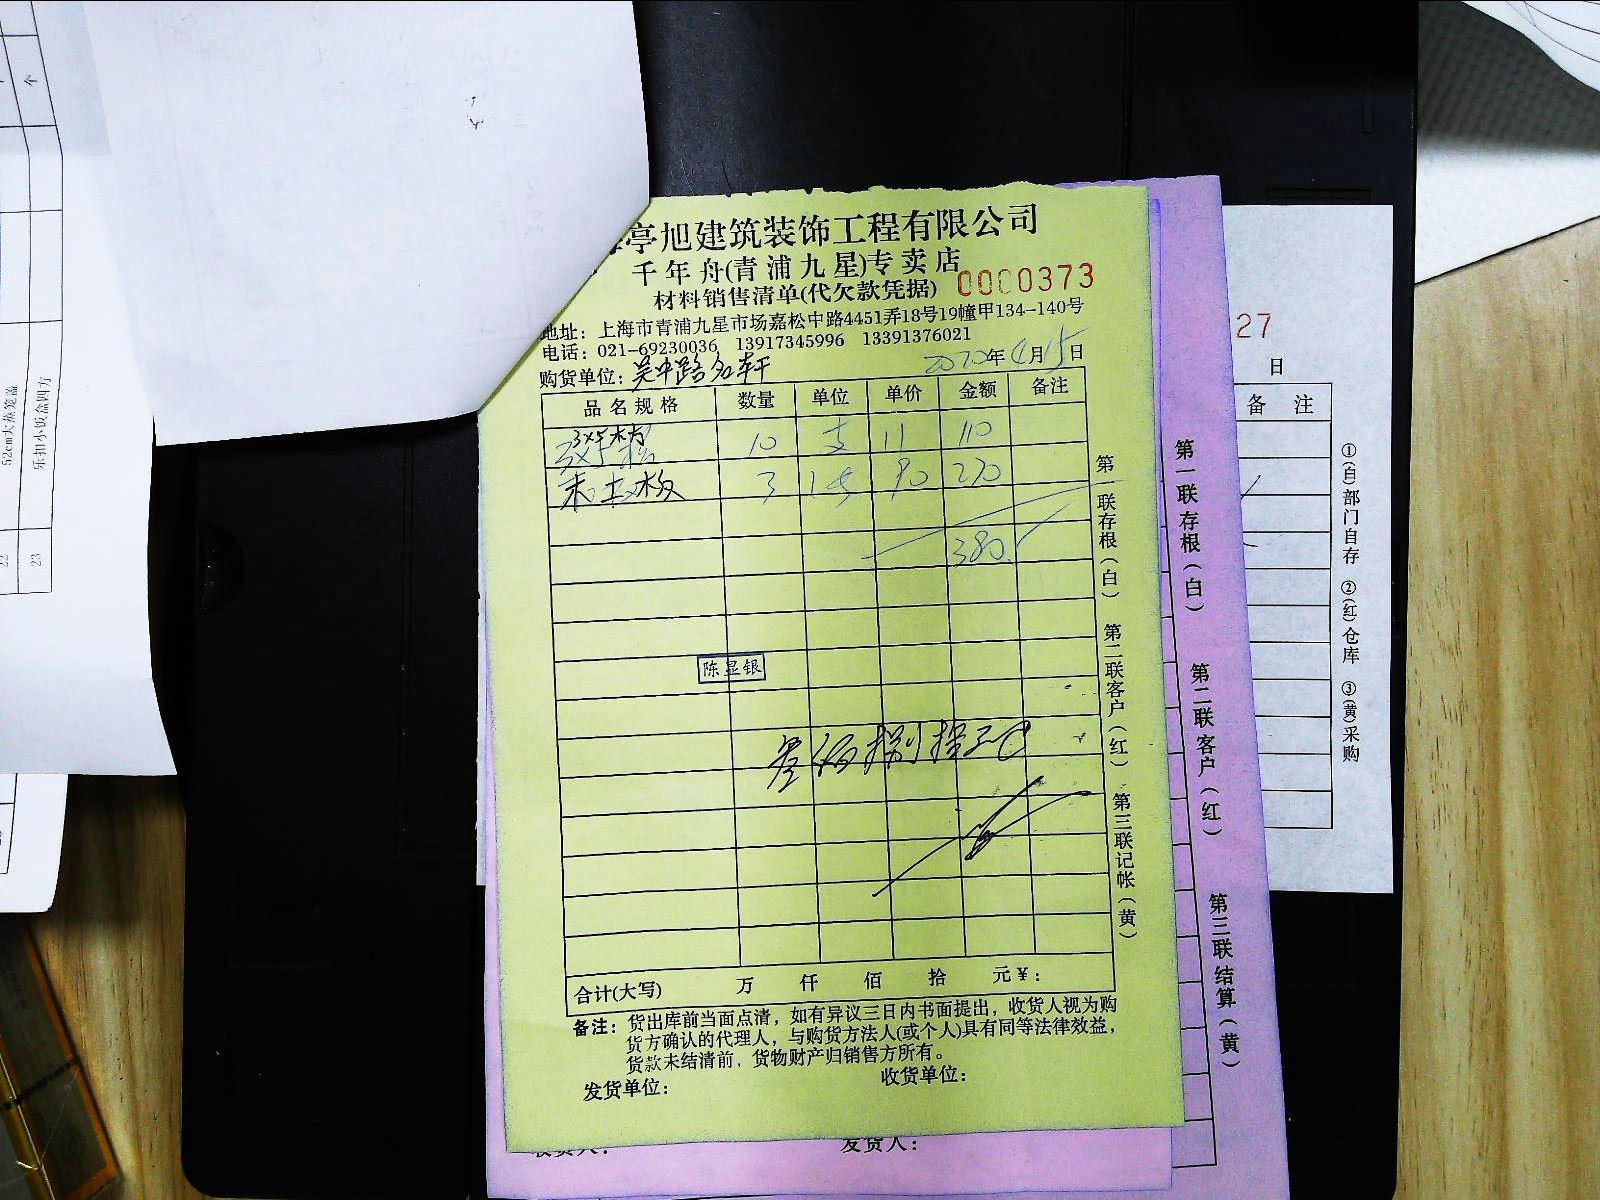 亭旭建筑装饰工程有限公司
千年舟(青浦九星)专卖店
材料销售清单(代欠款凭据) 0000373
地址：上海市青浦九星市场嘉松中路4451弄18号19幢甲134-140号
电话：021-69230036 13917345996 13391376021
购货单位：吴中路名轩 2020年4月15日
品名规格 数量 单位 单价 金额 备注
3×5木方 10 支 11 110
3 张 90 270
380
陈显银
叁佰捌拾元
合计(大写) 万 仟 佰 拾 元¥：
备注：货出库前当面点清，如有异议三日内书面提出，收货人视为购
货方确认的代理人，与购货方法人(或个人)具有同等法律效益，
货款未结清前，货物财产归销售方所有。
发货单位： 收货单位：
第一联存根（白） 第二联客户（红） 第三联记帐（黄）
第一联存根（白） 第二联客户（红） 第三联结算（黄）
发货人：
27
日
备 注
①(白)部门自存 ②(红)仓库 ③(黄)采购
个
52cm大蒸笼盖
乐扣小饭盒四方
22
23